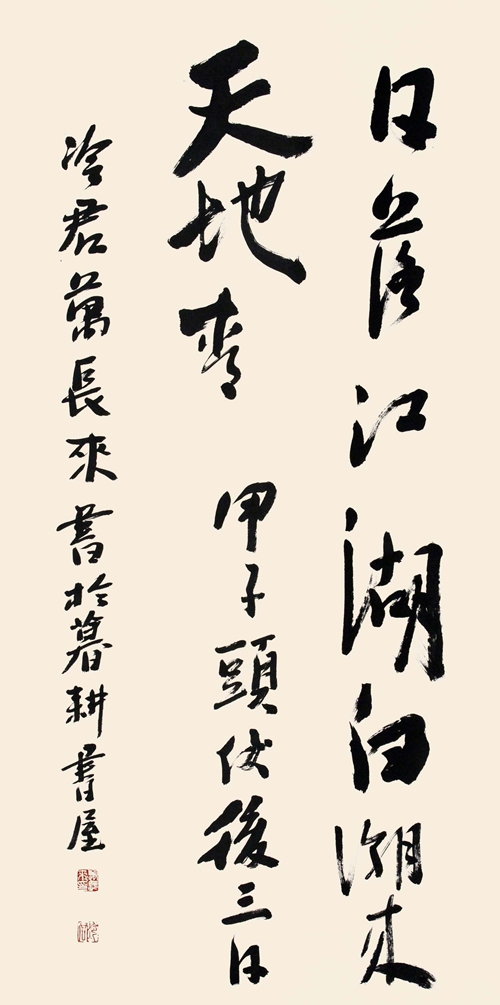 日落江湖白潮来
天地青 甲子頭伏後三日
冷君萬長來書於暮耕書屋